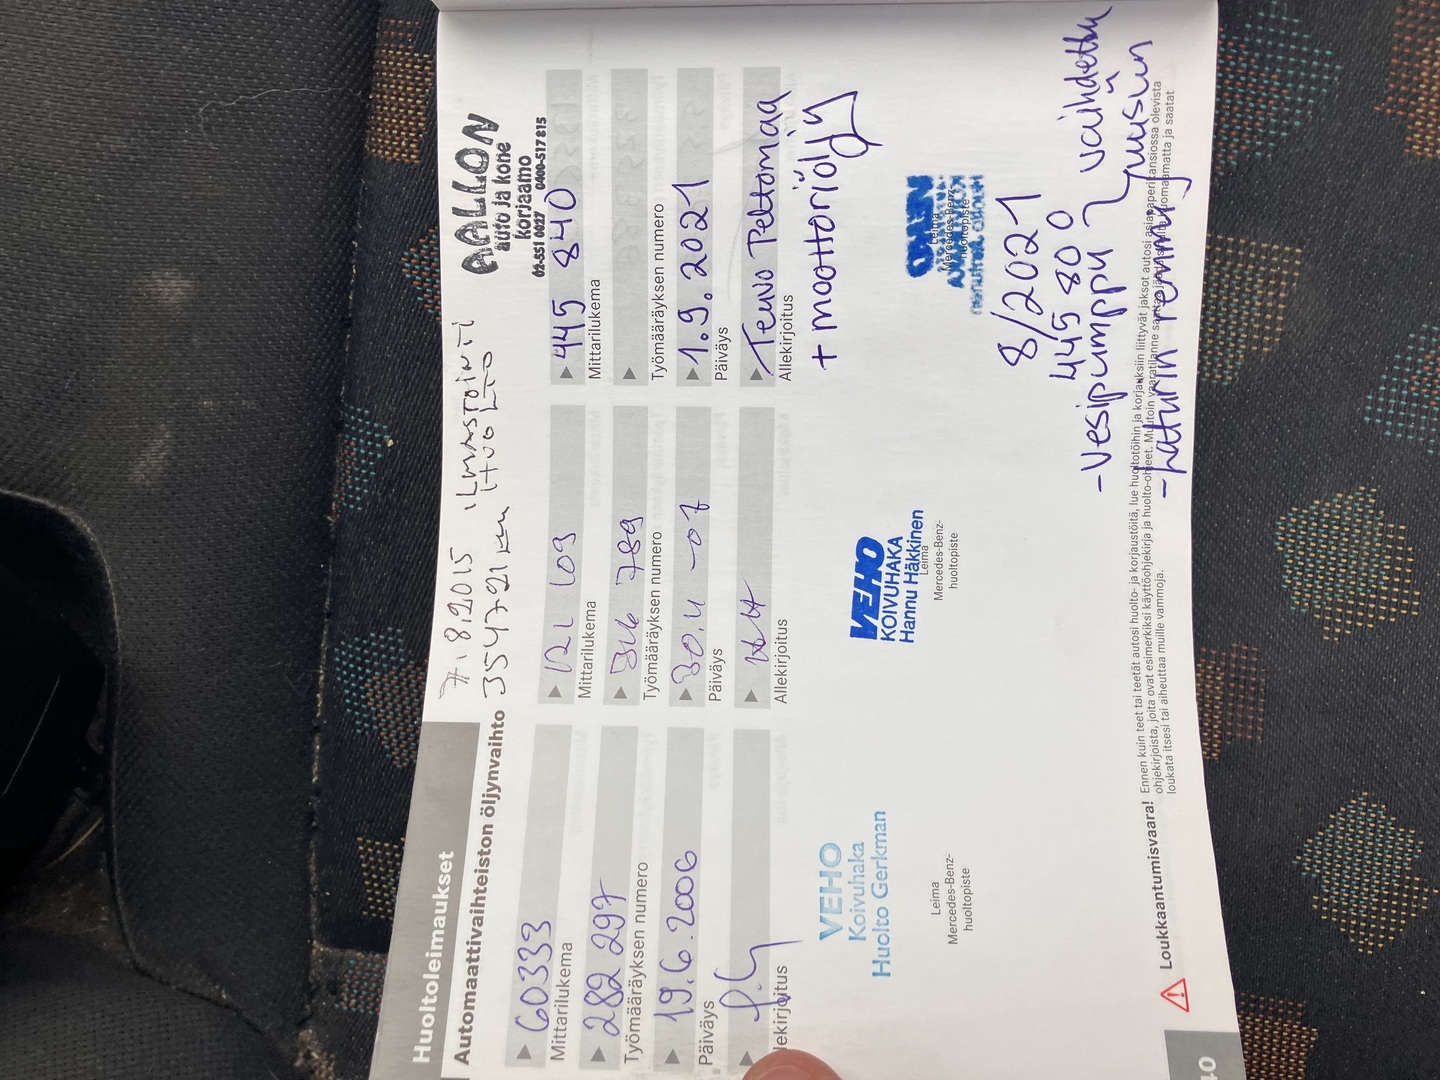 Huoltoleimaukset
Automaattivaihteiston öljynvaihto
7.8.2015
354721 km HUOLTO
AALLON
auto ja kone
korjaamo
02-551 0027 0400-517 815
60333
Mittarilukema
282 297
Työmääräyksen numero
19.6.2006
Päiväys
lekirjoitus
VEHO
Koivuhaka
Huolto Gerkman
Leima
Mercedes-Benz-
huoltopiste
121 109
Mittarilukema
789
Työmääräyksen numero
30.11-07
Päiväys
HH
Allekirjoitus
VEHO
KOIVUHAKA
Hannu Häkkinen
Leima
Mercedes-Benz-
huoltopiste
445 840
Mittarilukema
Työmääräyksen numero
1.9.2021
Päiväys
Teuvo Peltomaa
Allekirjoitus
+ moottoriöljy
Leima
Mercedes-Benz-
huoltopiste
8/2021
445 800
-Vesipumppu } vaihdettu
-Laturin remmi } uusiin
Loukkaantumisvaara! Ennen kuin teet tai teetät autosi huolto- ja korjaustöitä, lue huoltotöihin ja korjauksiin liittyvät jaksot autosi asiapaperikansiossa olevista
ohjekirjoista, joita ovat esimerkiksi käyttöohjekirja ja huolto-ohjeet. Muutoin vaaratilanne saattaa jäädä huomaamatta ja saatat
loukata itsesi tai aiheuttaa muille vammoja.
40